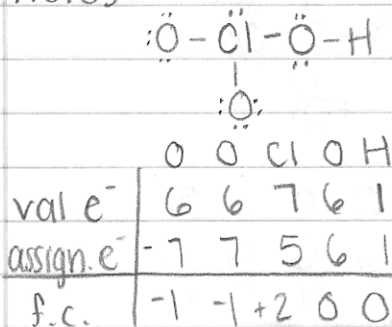 :Ö-C̈l-Ö-H
|
:Ö:
O O Cl O H
val e⁻ 6 6 7 6 1
assign. e⁻ -7 7 5 6 1
f.c. -1 -1 +2 0 0